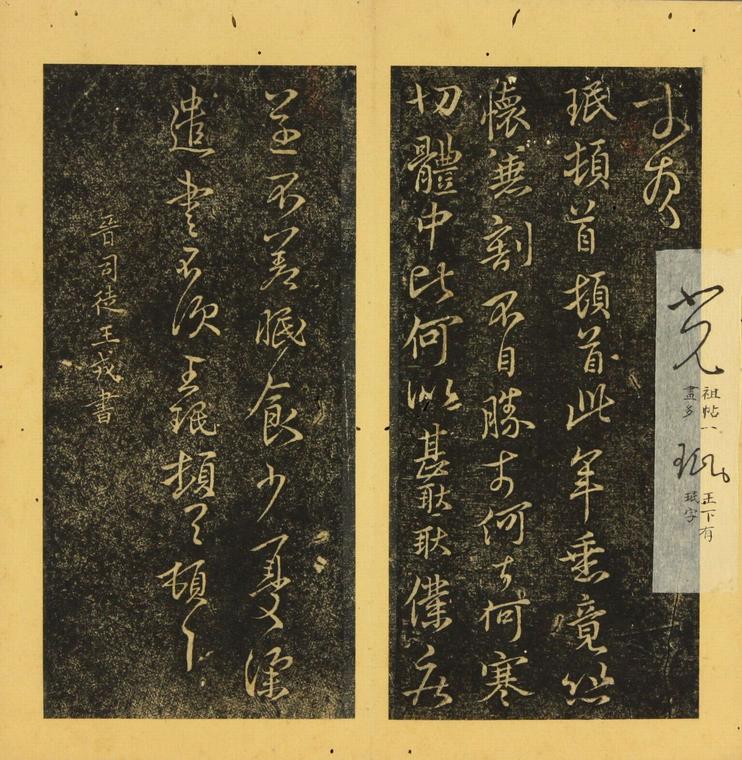 祖帖
畫多
珉
王下有
珉字
珉頓首頓首此年垂竟
懷兼割不自勝奈何奈何寒
切體中比何似甚耿耿僕疾
遂不差眠食少憂深
遣書不次王珉頓首頓首
晉司徒王戎書